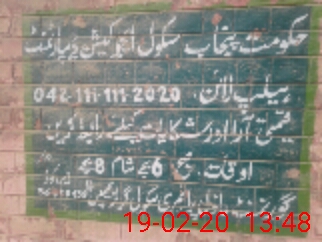 حکومت پنجاب سکول ایجوکیشن ڈیپارٹمنٹ
ہیلپ لائن 042-111-111-2020
قیمتی آرا اور شکایات کیلئے رابطہ کریں
اوقات صبح 6 بجے شام 8 بجے
گورنمنٹ پرائمری سکول
19-02-20 13:48